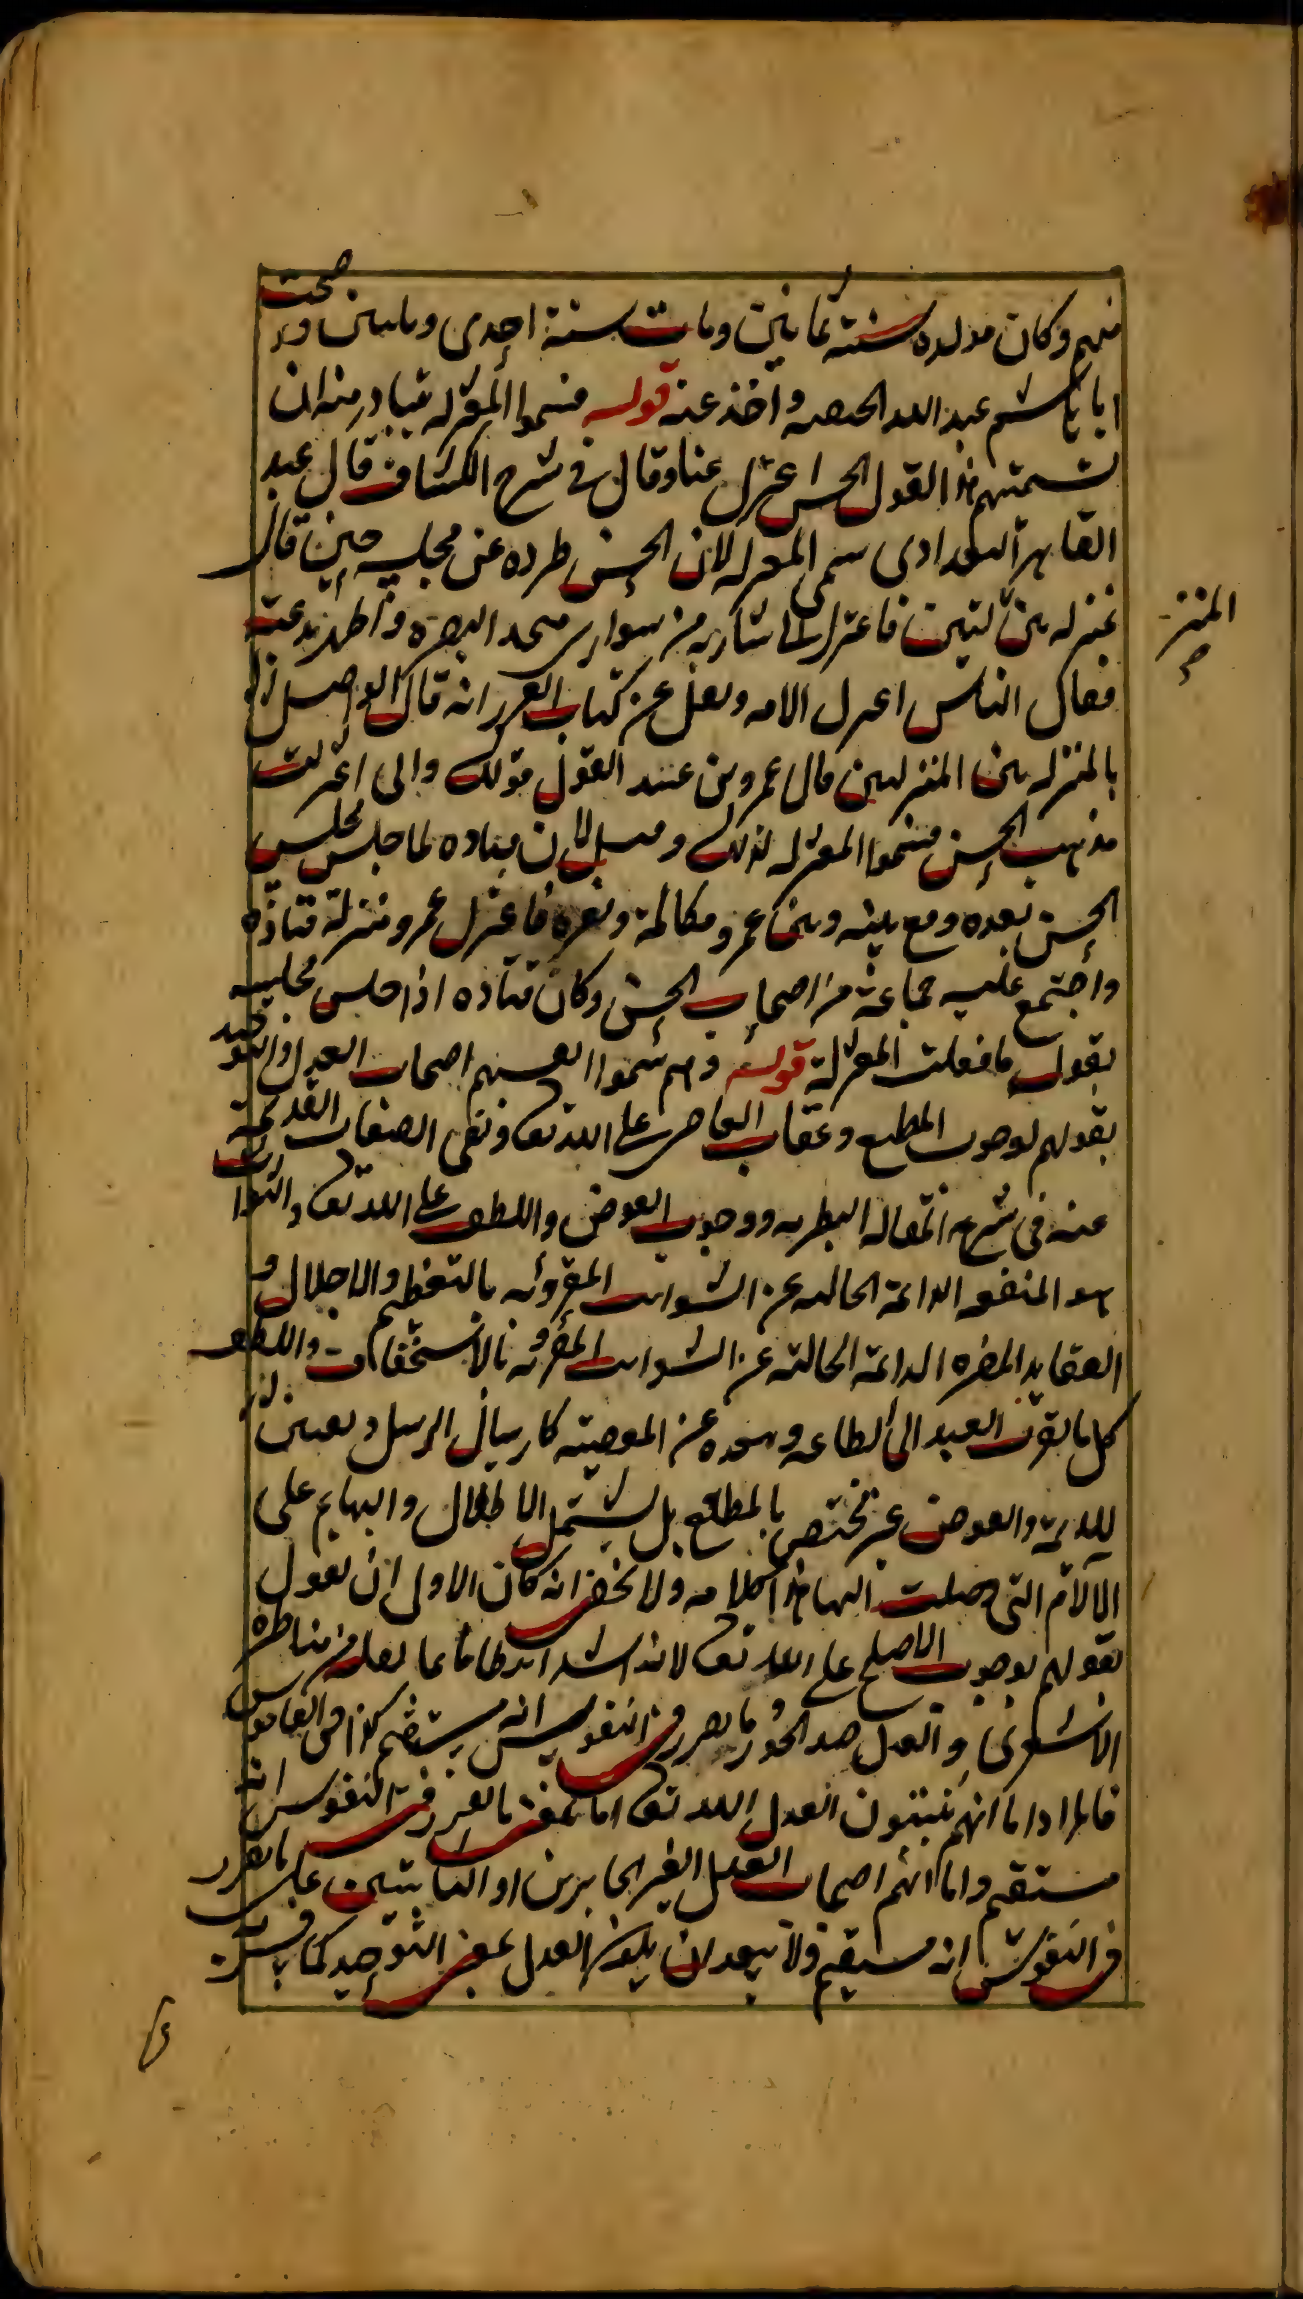 منهم وكان مولده سنة ثمانين ومات سنة احدى وثلثين وقد صحب
ابا هاشم عبد الله الحنفيه واخذ عنه قوله فسموا المعتزله يتبادر منه ان
تسميتهم هذا القول الحسن اعتزل عنا وقال في شرح الكشاف قال عبد
القاهر البغدادى سمى المعتزله لان الحسن طرده عن مجلسه حين قال
بمنزله بين المنزلتين فاعتزل الى ساريه من سوارى مسجد البصره واظهر بدعته
فقال الناس اعتزل الامه ونقل عن كتاب الغرر انه قال الواصل
بالمنزله بين المنزلتين قال عمرو بن عبيد القول قولك وانى اعتزلت
مذهب الحسن فسموا المعتزله لذلك وقيل لان قتاده لما جلس مجلس
الحسن بعده وقع بينه وبين عمرو مكالمة ونفره فاعتزل عمرو منزلة قتاده
واجتمع عليه جماعة من اصحاب الحسن وكان قتاده اذا جلس مجلسه
يقول ما فعلت المعتزلة قوله وهم سموا انفسهم اصحاب العدل والتوحيد
بقولهم بوجوب المطيع وعقاب العاصى على الله تعالى ونفى الصفات القديمة
عنه فى شرح المقاله النظريه ووجوب العوض واللطف على الله تعالى والثواب
هو المنفعه الدائمة الخاليه عن الشوائب المقرونه بالتعظيم والاجلال و
العقاب المضره الدائمة الخالية عن الشوائب المقرونه بالاستخفاف واللطف
كل ما يقرب العبد الى الطاعه ويبعده عن المعصيته كارسال الرسل
والعوض غير مختص بالمطيع بل يشتمل الاطفال والبهايم على
الالام التى وصلت اليها هذا كلامه ولا يخفى انه كان الاولى ان يقول
بقولهم بوجوب الاصلح على الله تعالى لانه اشد ارتباطا بما نقل من مناظره
الاشعرى والعدل ضد الجور وما تقرر فى النفوس انه مستقيم كذا فى القاموس
فالمراد اما انهم يثبتون العدل لله تعالى اما بمعنى ما تقرر فى النفوس انه
مستقيم واما انهم اصحاب العدل الغير الجايرين او الثابتين على ما تقرر
فى النفوس انه مستقيم ولا يبعد ان يكون العدل بمعنى التوحيد كما
المنز